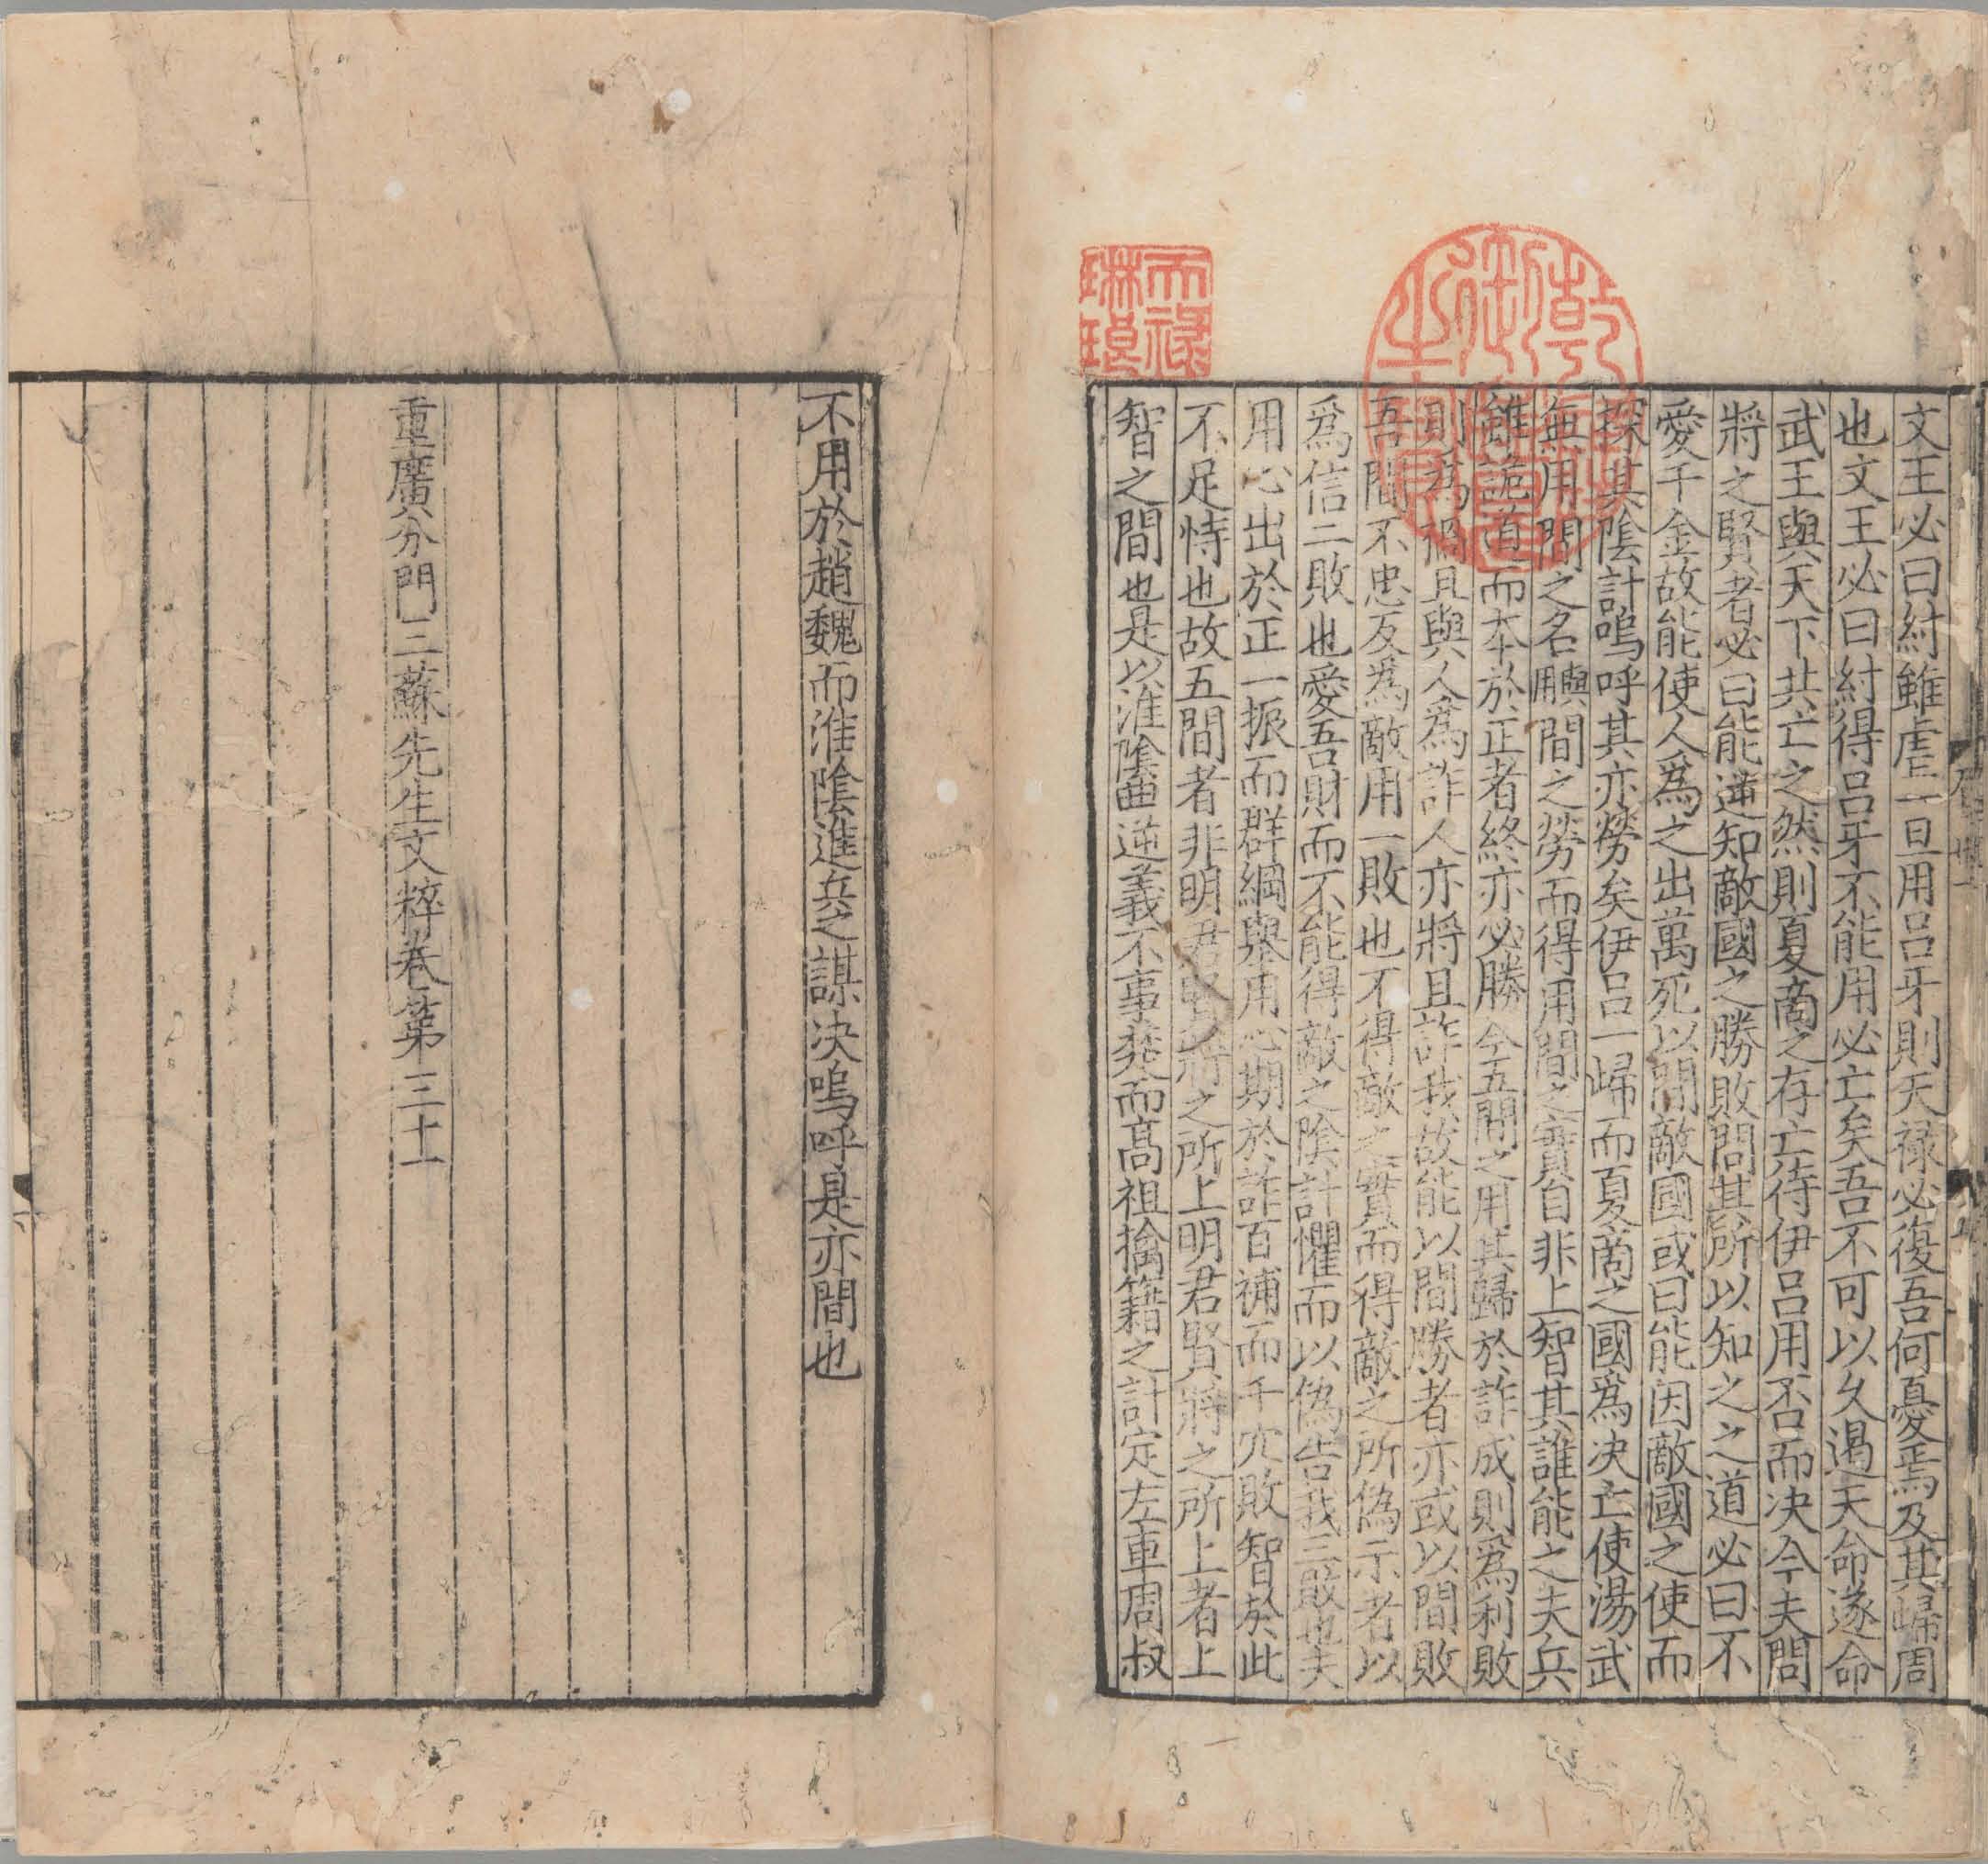 文王必曰紂雖虐一旦用呂牙則天祿必復吾何憂焉及其歸周
也文王必曰紂得呂牙不能用必亡矣吾不可以久遏天命遂命
武王與天下共亡之然則夏商之存亡待伊呂用否而决今夫問
將之賢者必曰能逆知敵國之勝敗問其所以知之之道必曰不
愛千金故能使人爲之出萬死以間敵國或曰能因敵國之使而
探其陰計嗚呼其亦勞矣伊呂一歸而夏商之國爲决亡使湯武
無用間之名與用間之勞而得用間之實自非上智其誰能之夫兵
雖詭道而本於正者終亦必勝今五間之用其歸於詐成則爲利敗
則爲禍且與人爲詐人亦將且詐我故能以間勝者亦或以間敗
吾間不忠反爲敵用一敗也不得敵之實而得敵之所僞示者以
爲信二敗也愛吾財而不能得敵之陰計懼而以僞告我三敗也夫
用心出於正一振而群綱舉用心期於詐百補而千穴敗智於此
不足恃也故五間者非明君賢將之所上明君賢將之所上者上
智之間也是以淮陰曲逆義不事楚而高祖擒籍之計定左車周叔
不用於趙魏而淮陰進兵之謀决嗚呼是亦間也
重廣分門三蘇先生文粹卷第三十一
乾隆御覽之寶
天祿琳琅